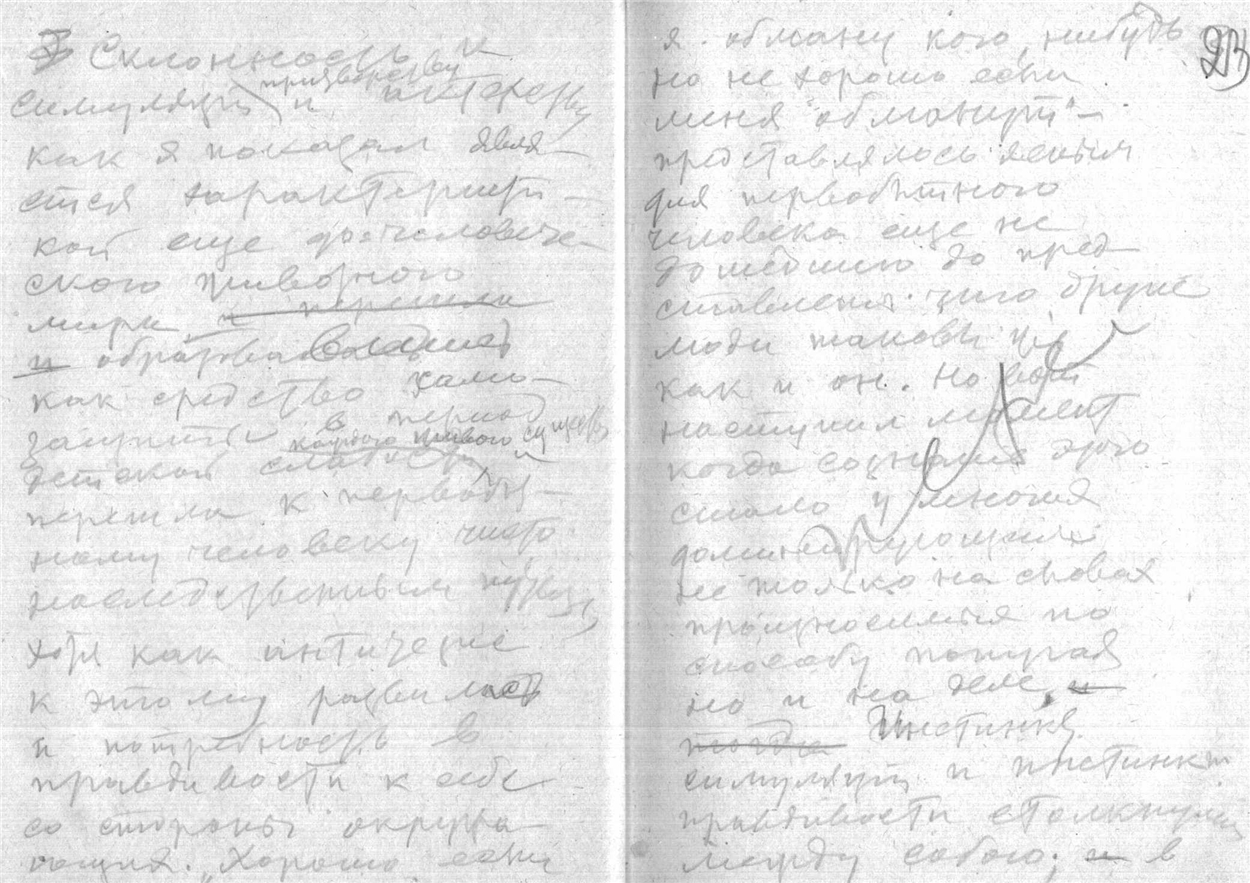 Склонность к
симуляции притворству и интересу
как я показал явля-
ется характеристи-
кой еще до человече-
ского животного
мира и перешла
и образовалась
как средство само-
защиты в период
каждого живого существа
детской слабости и
перешла к первобыт-
ному человеку чисто
наследственным путем,
хотя как антитезис
к этому развилась
и потребность в
правдивости к себе
со стороны окружа
ющих. „Хорошо если
я обману кого нибудь
но не хорошо если
меня обманут"—
представлялось ясным
для первобытного
человека еще не
дошедшего до пред
ставления что другие
люди таковы же
как и он. Но вот
наступил момент
когда сознание этого
стало у многих
доминирующим
не только на словах
произносимых по
способу попугая
но и на деле, и
тогда Инстинкт
симуляции и инстинкт
правдивости столкнулись
между собою; и в
23